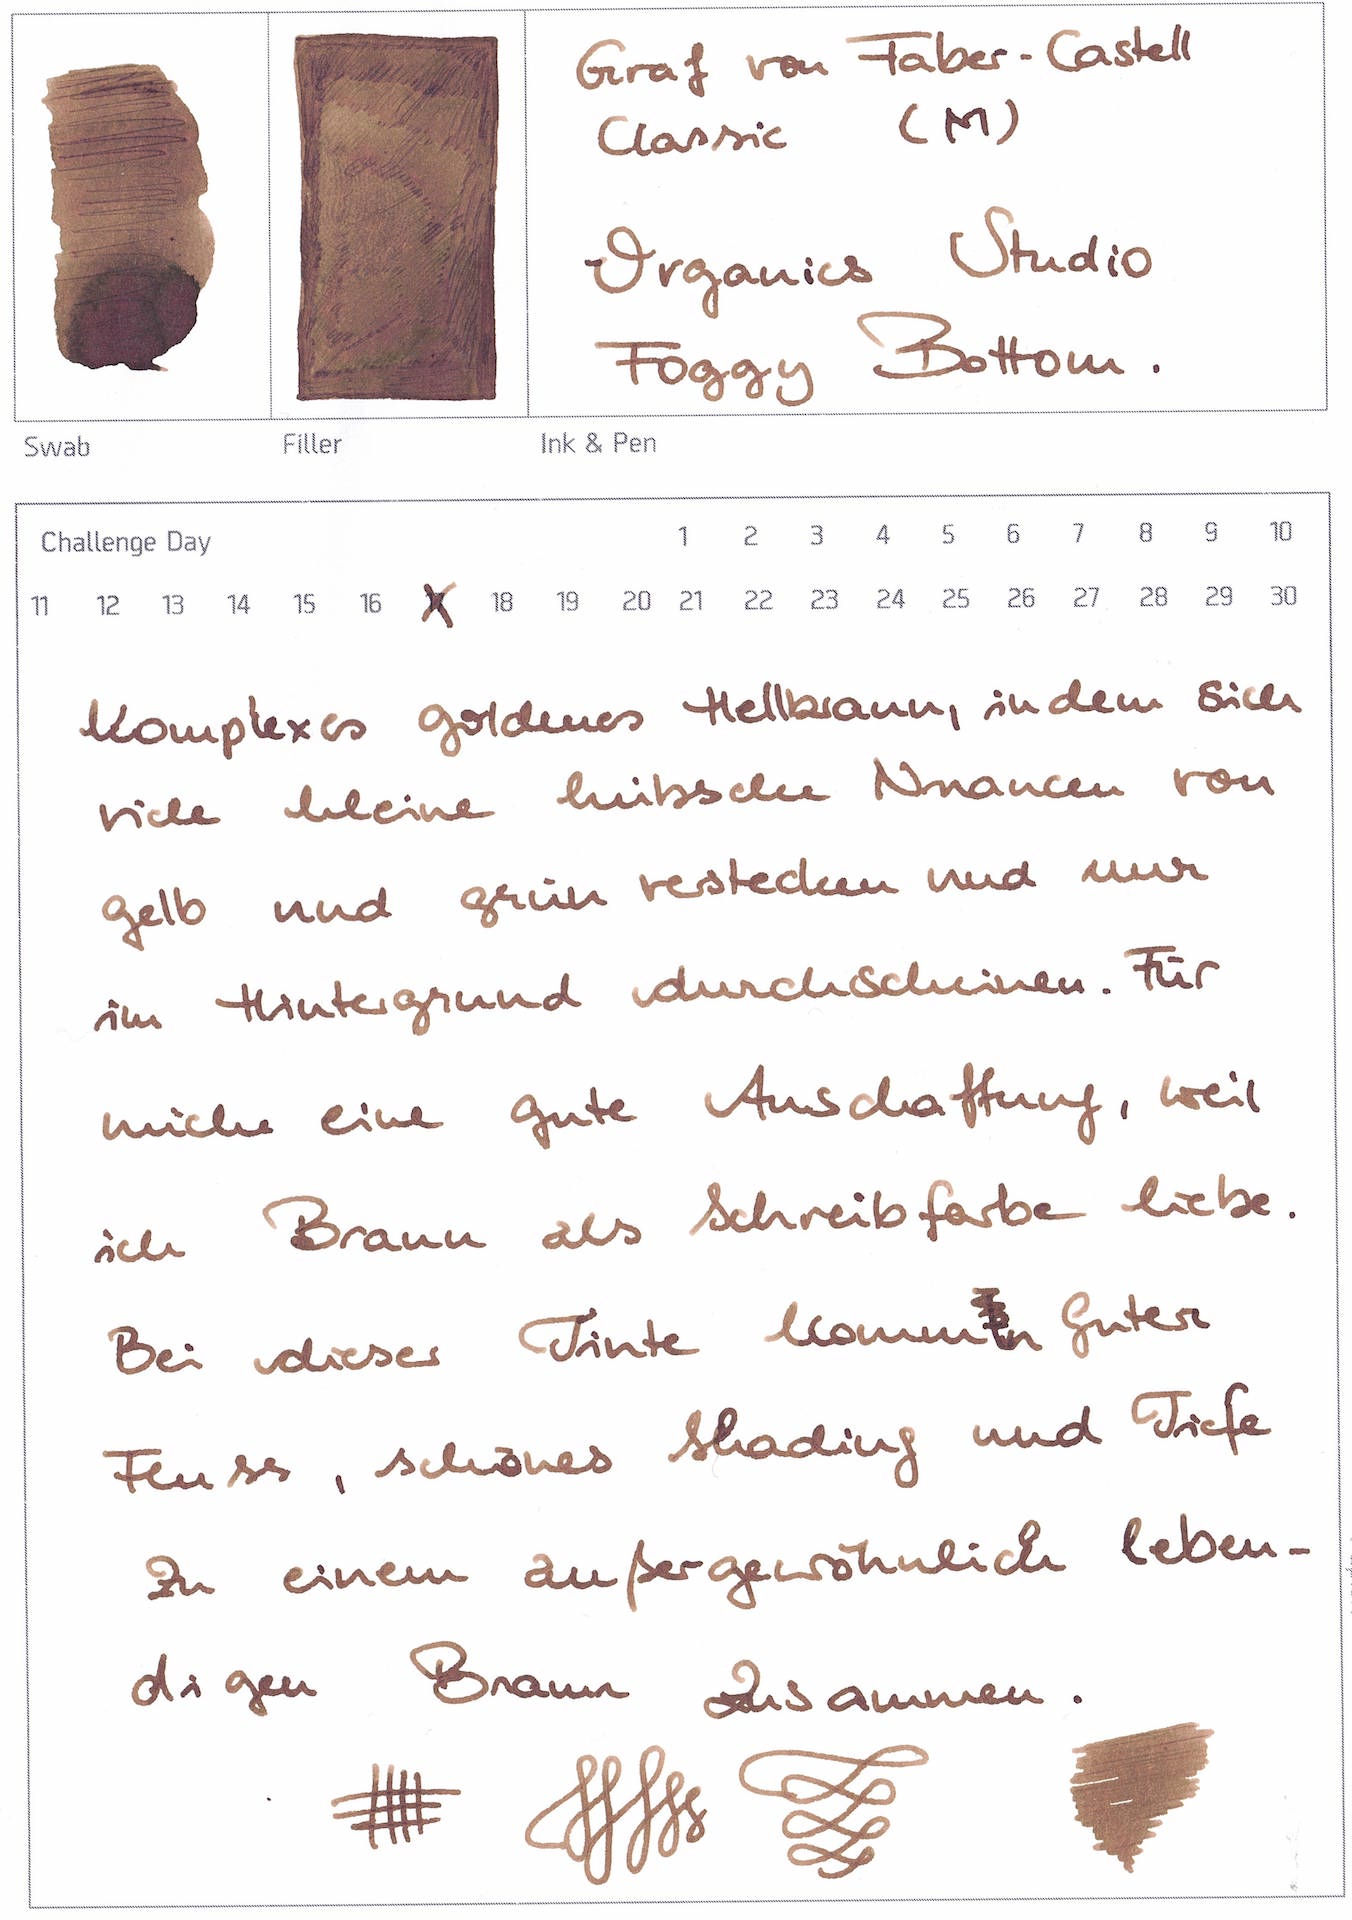 Graf von Faber-Castell
Classic (M)
Organics Studio
Foggy Bottom.
Swab Filler Ink & Pen
Challenge Day 1 2 3 4 5 6 7 8 9 10
11 12 13 14 15 16 X 18 19 20 21 22 23 24 25 26 27 28 29 30
Komplexes goldenes Hellbraun, in dem sich
viele kleine hübsche Nuancen von
gelb und grün verstecken und nur
im Hintergrund durchscheinen. Für
mich eine gute Anschaffung, weil
ich Braun als Schreibfarbe liebe.
Bei dieser Tinte kommen Guter
Fluss, schönes Shading und Tiefe
Zu einem außergewöhnlich leben-
digen Braun zusammen.